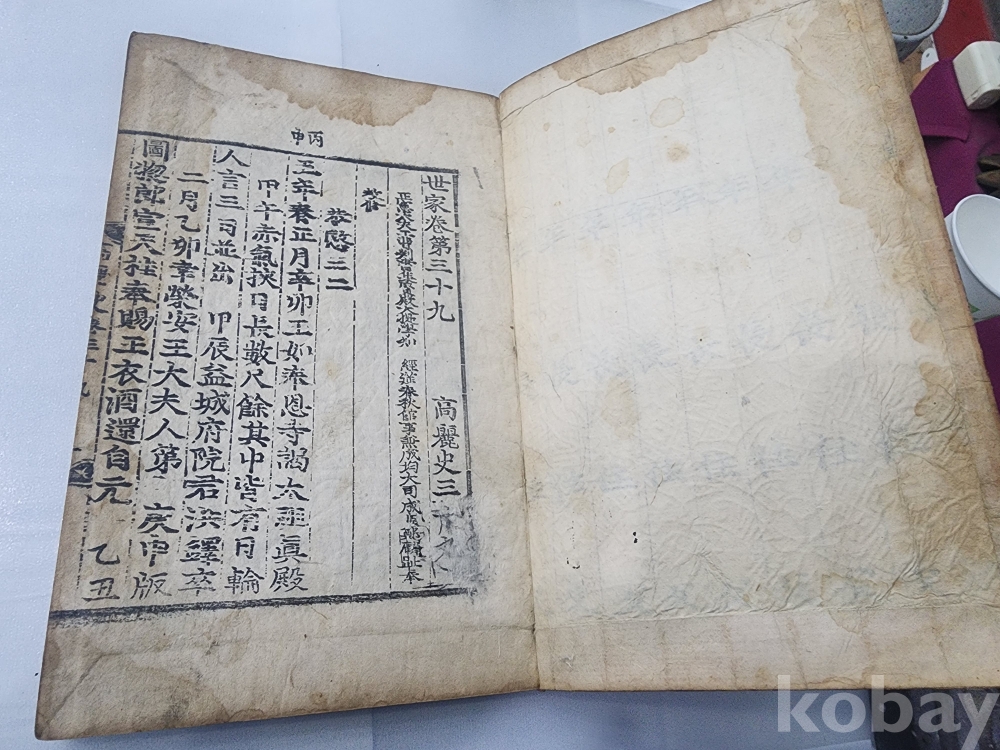 世家卷第三十九 高麗史三十九
正憲大夫工曹判書集賢殿大提學知 經筵春秋館事兼成均大司成臣鄭麟趾奉
敎修
恭愍王二
丙申
五年春正月辛卯王如奉恩寺謁太祖眞殿
甲午赤氣挾日長數尺餘其中皆有日輪
人言三日並出 甲辰益城府院君洪鐸卒
二月乙卯幸榮安王大夫人第 庚申版
圖摠郞宣天桂奉賜王衣酒還自元 乙丑
kobay